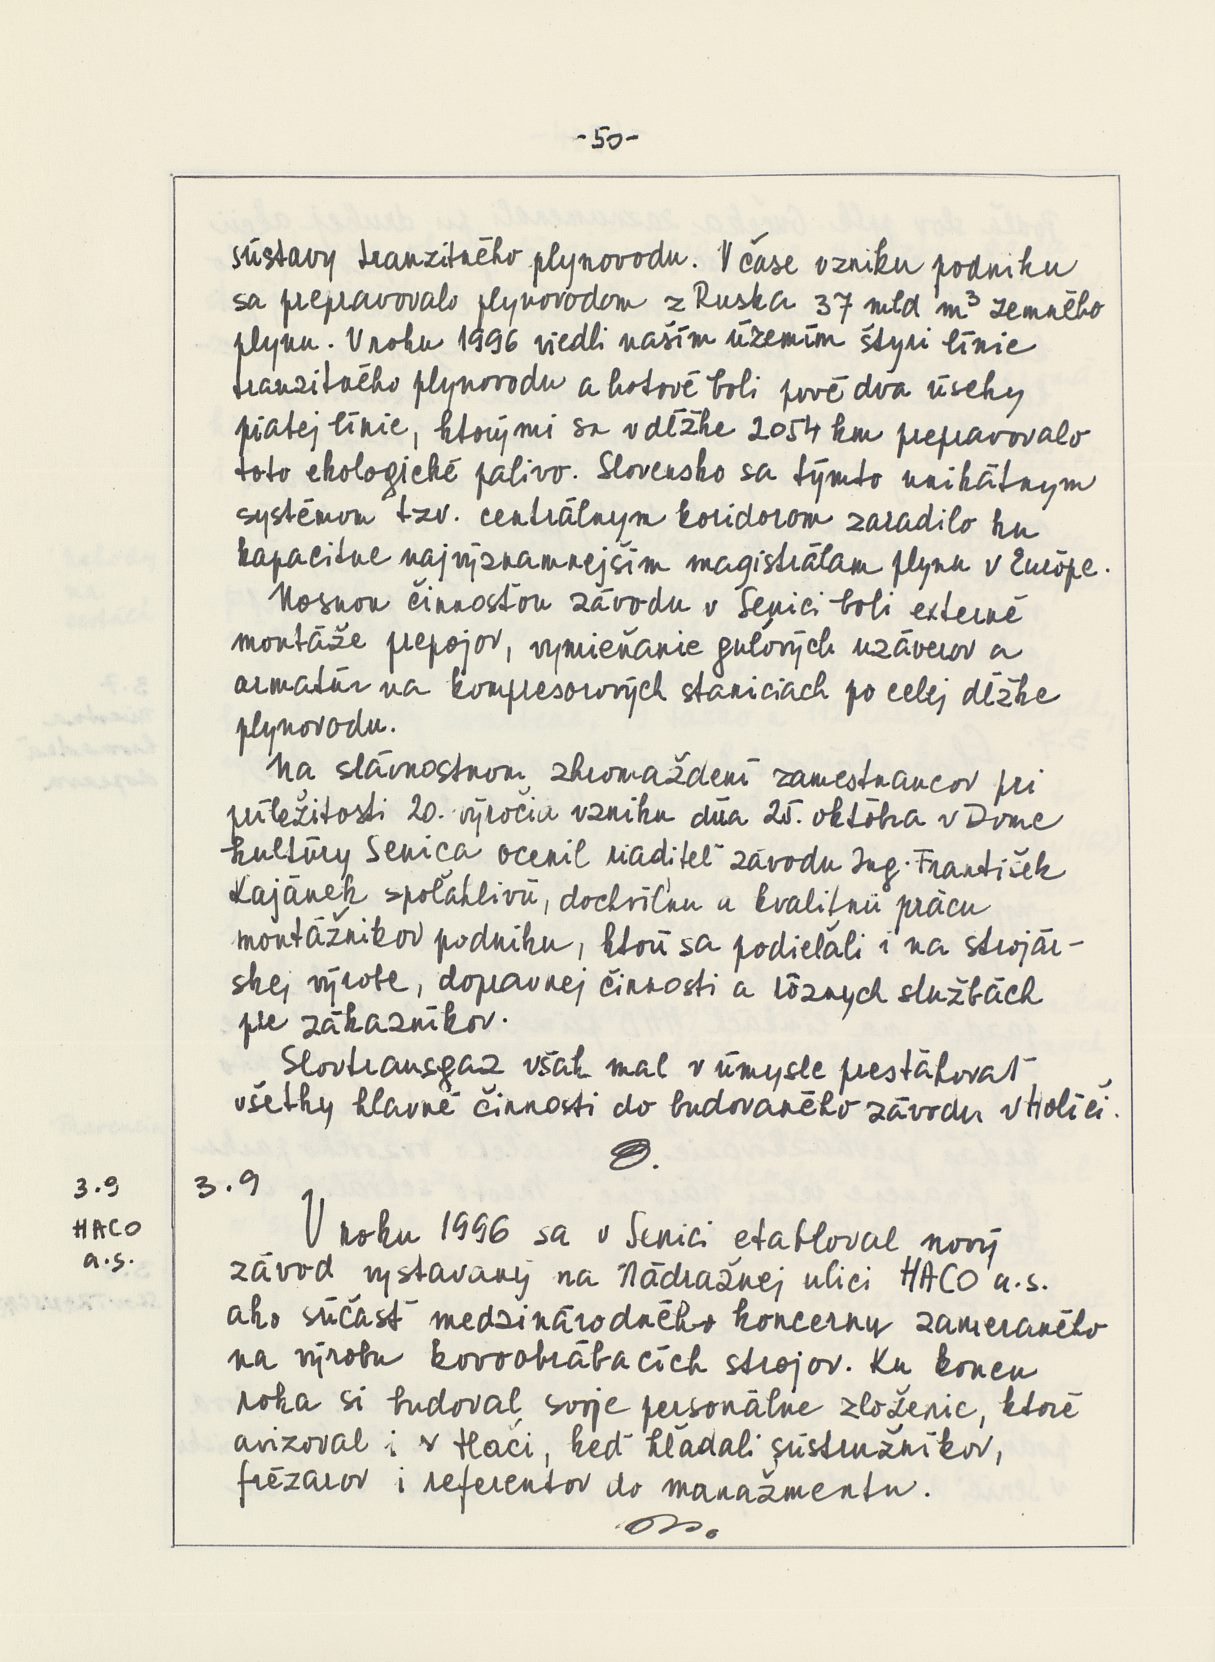 -50-
sústavy tranzitného plynovodu. V čase vzniku podniku
sa prepravovalo plynovodom z Ruska 37 mld m³ zemného
plynu. V roku 1996 viedli naším územím štyri línie
tranzitného plynovodu a hotové boli prvé dva úseky
piatej línie, ktorými sa v dĺžke 2054 km prepravovalo
toto ekologické palivo. Slovensko sa týmto unikátnym
systémom tzv. centrálnym koridorom zaradilo ku
kapacitne najvýznamnejším magistrálam plynu v Európe.
Nosnou činnosťou závodu v Senici boli externé
montáže prepojov, vymieňanie guľových uzáverov a
armatúr na kompresorových staniciach po celej dĺžke
plynovodu.
Na slávnostnom zhromaždení zamestnancov pri
príležitosti 20. výročia vzniku dňa 25. októbra v Dome
kultúry Senica ocenil riaditeľ závodu Ing. František
Kajánek spoľahlivú, dochvíľnu a kvalitnú prácu
montážnikov podniku, ktorí sa podieľali i na strojár-
skej výrobe, dopravnej činnosti a rôznych službách
pre zákazníkov.
Slovtransgaz však mal v úmysle presťahovať
všetky hlavné činnosti do budovaného závodu v Holíči.
3.9
HACO
a.s.
3.9
V roku 1996 sa v Senici etabloval nový
závod vystavaný na Nádražnej ulici HACO a.s.
ako súčasť medzinárodného koncernu zameraného
na výrobu kovoobrábacích strojov. Ku koncu
roka si budoval svoje personálne zloženie, ktoré
avizoval i v tlači, keď hľadali sústružníkov,
frézarov i referentov do manažmentu.